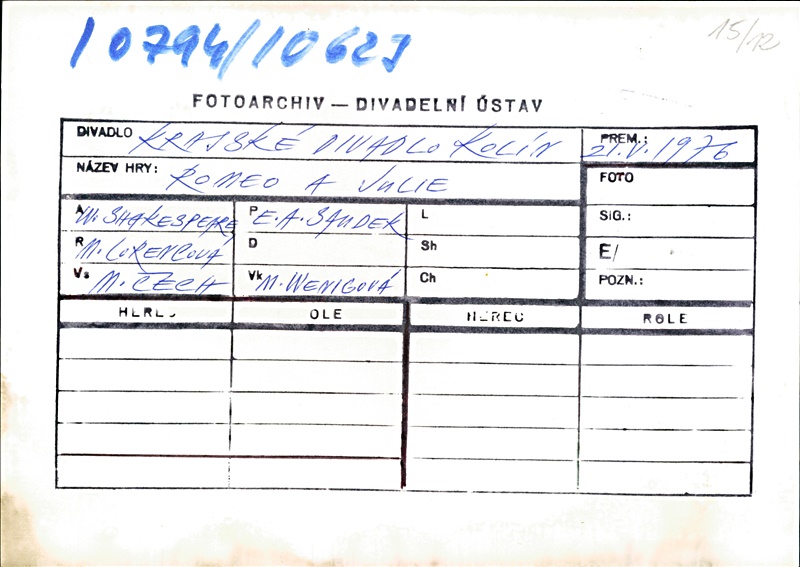 10794/10623
15/12
FOTOARCHIV — DIVADELNÍ ÚSTAV
DIVADLO KRAJSKÉ DIVADLO KOLÍN
PREM.: 21.V.1976
NÁZEV HRY: ROMEO A JULIE
FOTO
A W. SHAKESPEARE P E. A. SAUDEK L SIG.:
R M. LORENCOVÁ D Sh E/
Vs M. CZECH Vk M. WENIGOVÁ Ch POZN.:
HEREC OLE HEREC ROLE